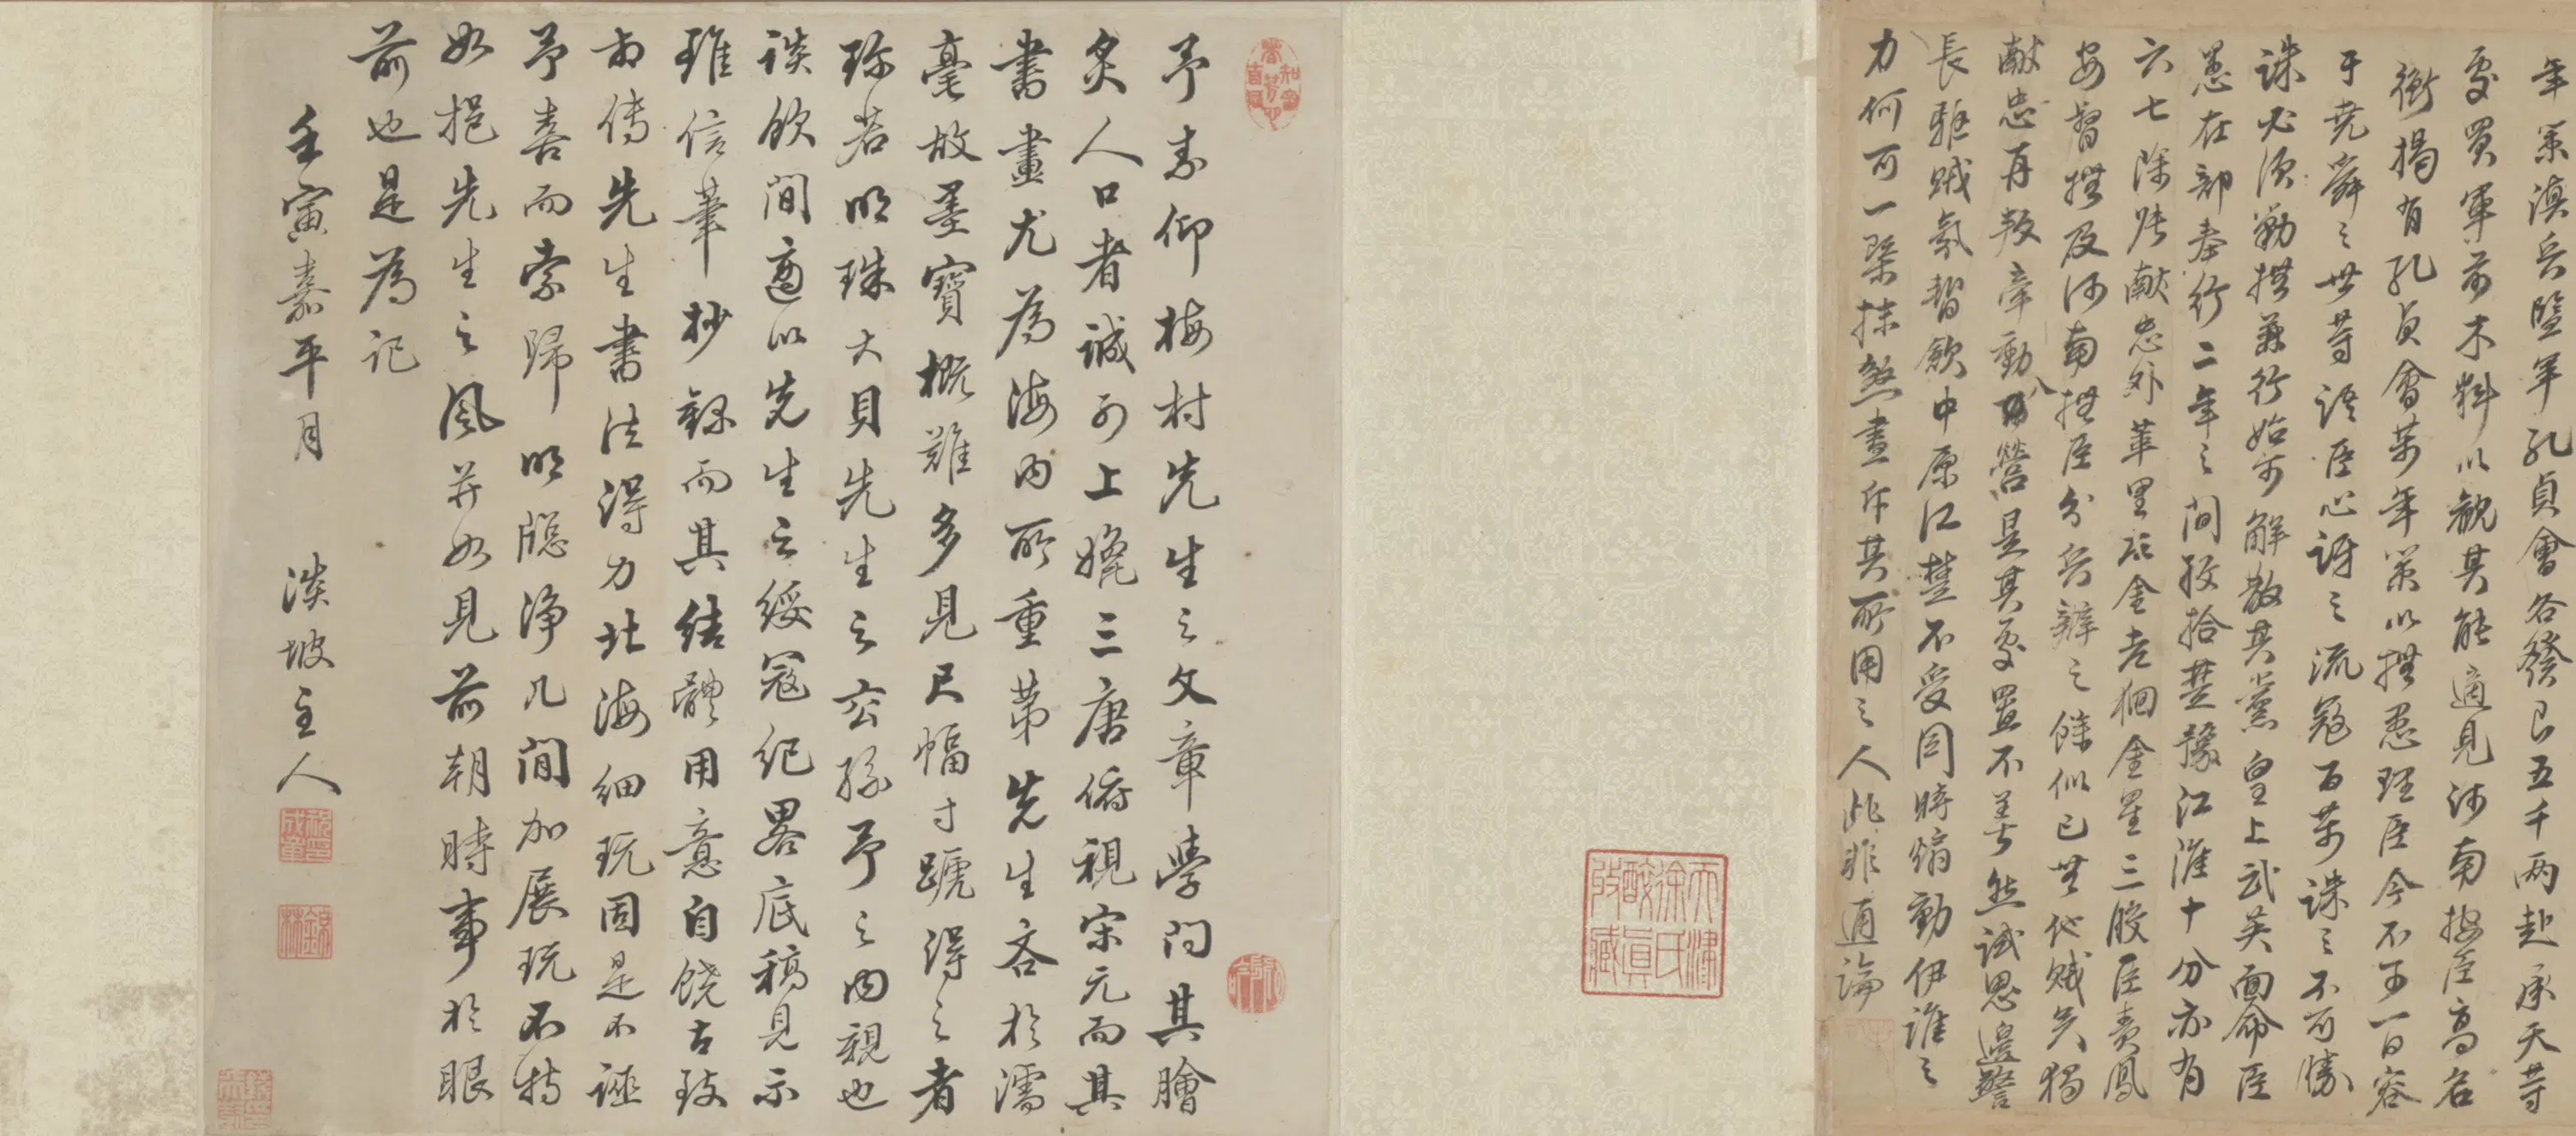 年策滇兵暨軍孔貞會各發良五千兩赴承天等
處買軍前木料以觀其能適見河南按臣高名
衡揭有孔貞會萬年策以撫悉理臣今不可一日容
于堯舜之世等語臣心訝之流寇百萬誅之不可勝
誅必須勦撫兼行始可解散其黨皇上武英面命臣
愚在部奉行二年之間收拾楚豫江淮十分亦有
六七除陟獻忠外革里眼金老狪金星三股臣責鳳
安督撫及河南撫臣分兵辦之餘似已無他賊矣獨
獻忠再叛牽動八營是其處置不善然試思邊警
長驅賊氛暫斂中原江楚不受同時煽動伊誰之
力何可一槩抹煞盡斥其所用之人此非通論
天津徐氏酸眞收藏
予素仰梅村先生之文章學問其膾
炙人口者誠可上媲三唐俯視宋元而其
書畫尤為海內所重第先生吝於濡
毫故墨寶概難多見尺幅寸蹏得之者
珍若明珠大貝先生之玄孫予之內親也
談飲間適以先生之綏寇紀畧底稿見示
雖信筆抄錄而其結體用意自饒古致
向傳先生書法得力北海細玩固是不誣
予喜而索歸明牕淨几間加展玩不特
如挹先生之風并如見前朝時事於眼
前也是為記
壬寅嘉平月 淡坡主人
錦林